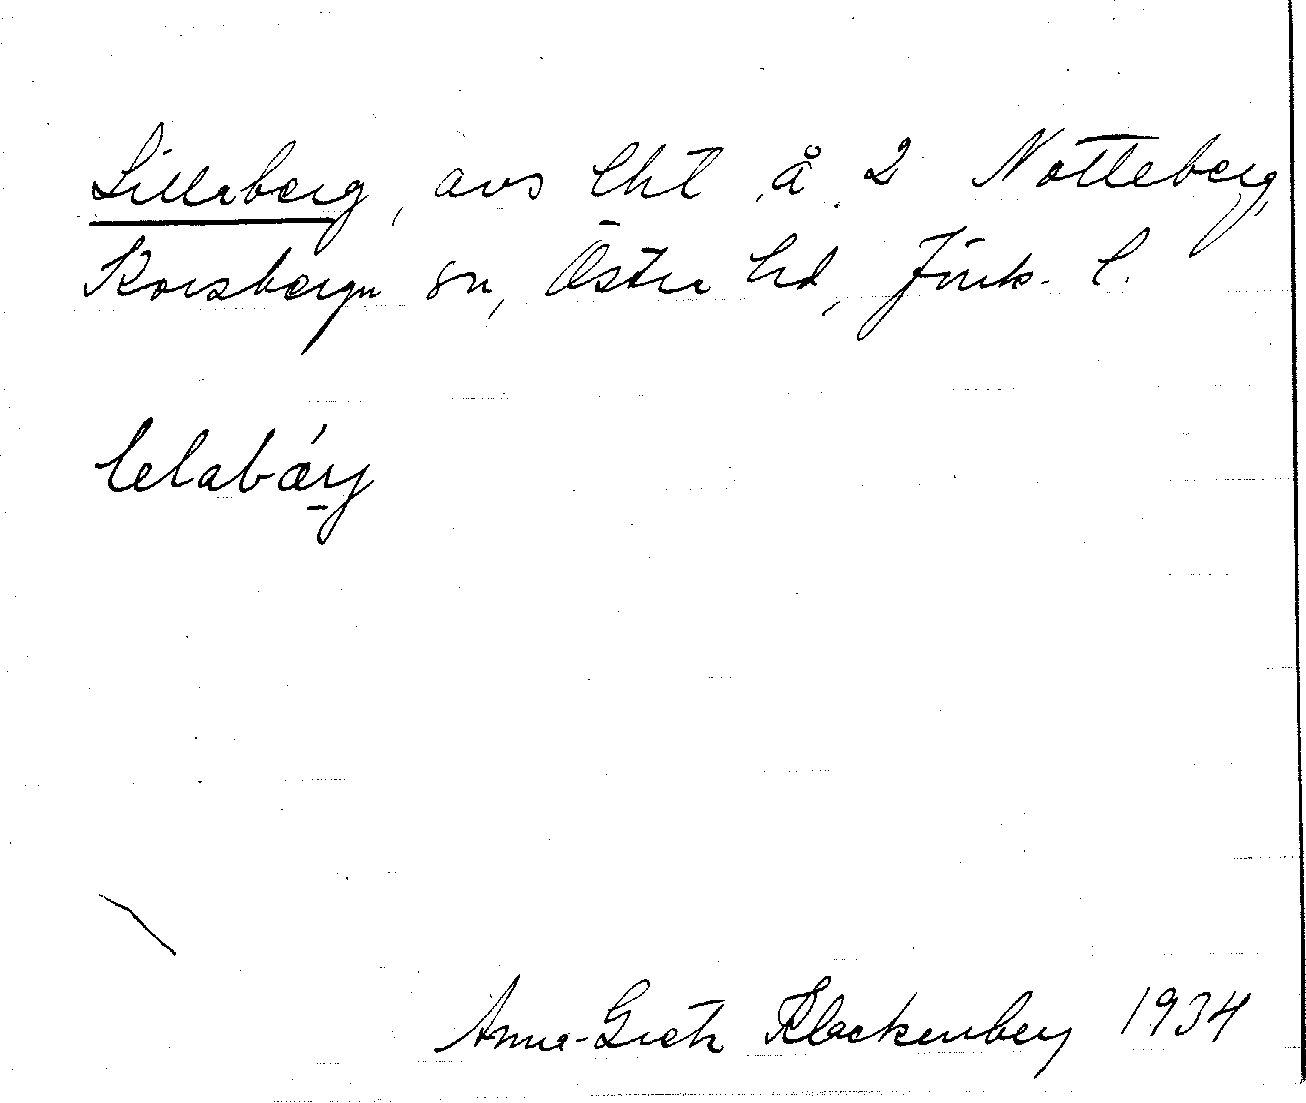 Lilleberg, avs lht å 2 Notteberg,
Korsberga sn, Östra hd, Jönk. l.
lelabǽry
Anna-Greta Klackenberg 1934